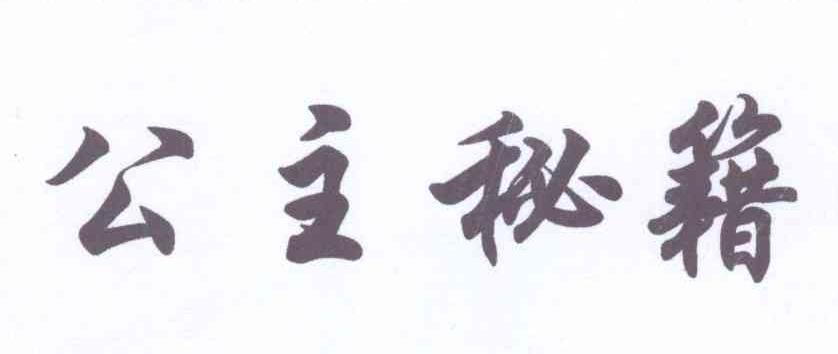 公主秘籍